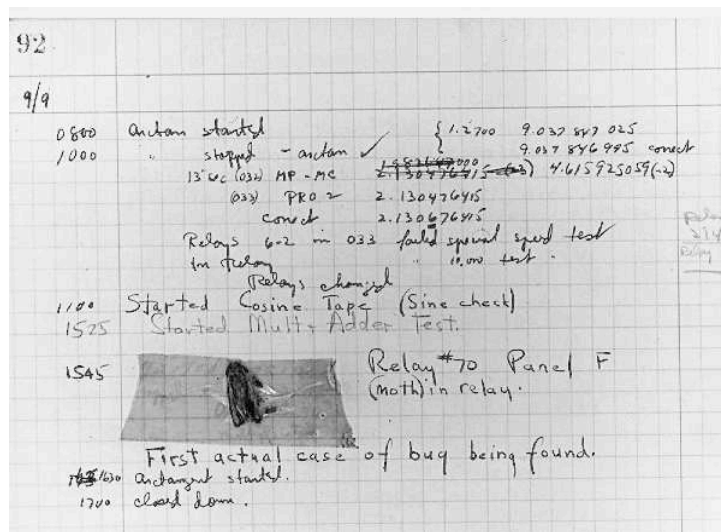 92
9/9
0800 Antan started { 1.2700 9.037 847 025
1000 " stopped - antan ✓ 9.037 846 995 conect
13"uc (032) MP - MC 2.130476415 4.615925059(-2)
(033) PRO 2 2.130476415
conect 2.130676415
Relays 6-2 in 033 failed special speed test
in relay " 10.000 test .
Relays changed
1100 Started Cosine Tape (Sine check)
1525 Started Mult + Adder Test.
1545 Relay #70 Panel F
(moth) in relay.
First actual case of bug being found.
1630 antangent started.
1700 closed down.